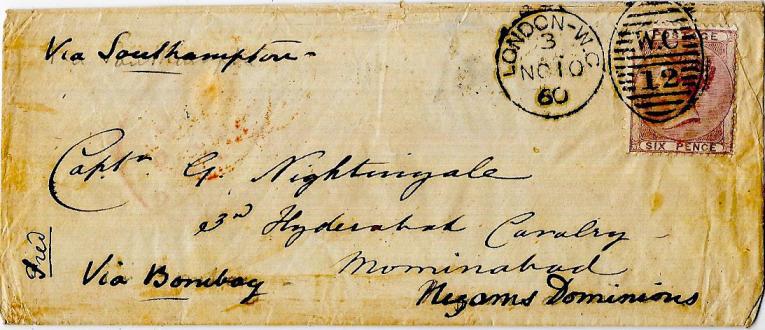 Via Southampton
LONDON-W.C
3
NO 10
60
W.C
12
POSTAGE
SIX PENCE
Captn G Nightingale
3rd Hyderabad Cavalry
Mominabad
Via Bombay
Nizams Dominions